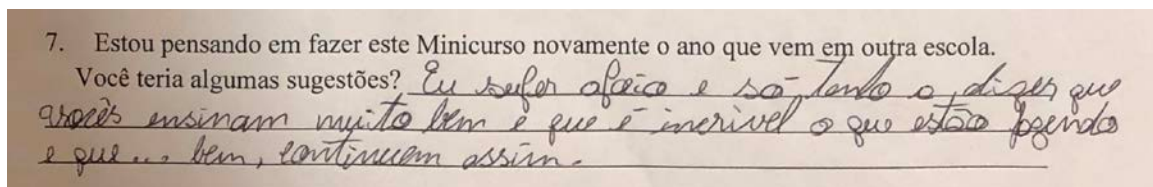 7. Estou pensando em fazer este Minicurso novamente o ano que vem em outra escola.
Você teria algumas sugestões? Eu super e só tenho a dizer que
vocês ensinam muito bem e que é incrivel o que estão fazendo
e que... bem, continuem assim.